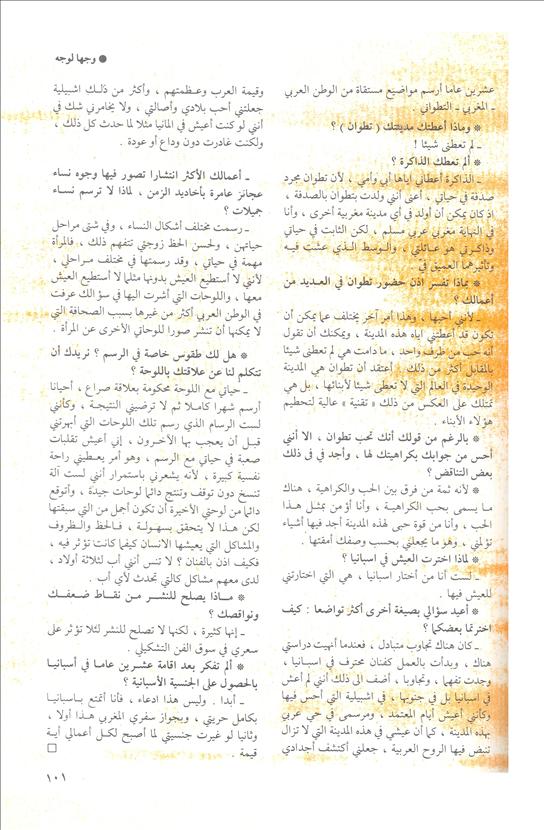 ● وجها لوجه
عشرين عاما أرسم مواضيع مستقاة من الوطن العربي
ـ المغربي ـ التطواني .
* وماذا أعطتك مدينتك ( تطوان ) ؟
ـ لم تعطنى شيئا !
* ألم تعطك الذاكرة ؟
ـ الذاكرة أعطاني اياها أبي وأمي ، لأن تطوان مجرد
صدفة في حياتي ، أعنى أنني ولدت بتطوان بالصدفة ،
اذ كان يمكن أن أولد في أي مدينة مغربية أخرى ، وأنا
في النهاية مغربي عربي مسلم ، لكن الثابت في حياتي
وذاكرتي هو عائلتي ، والوسط الذي عشت فيه
وتأثيرهما العميق في .
* بماذا تفسر اذن حضور تطوان في العديد من
أعمالك ؟
ـ لأنني أحبها ، وهذا أمر آخر يختلف عما يمكن أن
تكون قد أعطتني اياه هذه المدينة ، ويمكنك أن تقول
أنه حب من طرف واحد ، ما دامت هي لم تعطني شيئا
بالمقابل أكثر من ذلك ، أعتقد أن تطوان هي المدينة
الوحيدة في العالم التي لا تعطى شيئا لأبنائها ، بل هي
تمتلك على العكس من ذلك « تقنية » عالية لتحطيم
هؤلاء الأبناء .
* بالرغم من قولك أنك تحب تطوان ، الا أنني
أحس من جوابك بكراهيتك لها ، وأجد في فى ذلك
بعض التناقض ؟
* لأنه ثمة من فرق بين الحب والكراهية ، هناك
ما يسمى بحب الكراهية ، وأنا أؤ من بمثل هذا
الحب ، وأنا من قوة حبى لهذه المدينة أجد فيها أشياء
تؤلمني ، وهو ما يجعلني بحسب وصفك أمقتها .
* لماذا اخترت العيش في اسبانيا ؟
ـ لست أنا من أختار اسبانيا ، هي التي اختارتني
للعيش فيها .
* أعيد سؤالي بصيغة أخرى أكثر تواضعا : كيف
اخترتما بعضكما ؟
ـ كان هناك تجاوب متبادل ، فعندما أنهيت دراستي
هناك ، وبدأت بالعمل كفنان محترف في اسبانيا ،
وجدت تفهما ، وتجاوبا ، أضف الى ذلك أننى لم أعش
في اسبانيا بل في جنوبها ، في اشبيلية التي أحس فيها
وكأنني أعيش أيام المعتمد ، ومرسمى في حي عربي
بهذه المدينة ، كما أن عيشي في هذه المدينة التي لا تزال
تنبض فيها الروح العربية ، جعلني أكتشف أجدادي
وقيمة العرب وعظمتهم ، وأكثر من ذلك اشبيلية
جعلتني أحب بلادي وأصالتي ، ولا يخامرني شك في
أنني لو كنت أعيش في المانيا مثلا لما حدث كل ذلك ،
ولكنت غادرت دون وداع أو عودة .
ـ أعمالك الأكثر انتشارا تصور فيها وجوه نساء
عجائز عامرة بأخاديد الزمن ، لماذا لا ترسم نساء
جميلات ؟
ـ رسمت مختلف أشكال النساء ، وفي شتى مراحل
حياتهن ، ولحسن الحظ زوجتي تتفهم ذلك ، فالمرأة
مهمة في حياتي ، وقد رسمتها في مختلف مراحلي ،
لأنني لا أستطيع العيش بدونها مثلما لا أستطيع العيش
معها ، واللوحات التي أشرت اليها في سؤ الك عرفت
في الوطن العربي أكثر من غيرها بسبب الصحافة التي
لا يمكنها أن تنشر صورا للوحاتي الأخرى عن المرأة .
* هل لك طقوس خاصة في الرسم ؟ نريدك أن
تتكلم لنا عن علاقتك باللوحة ؟
ـ حياتي مع اللوحة محكومة بعلاقة صراع ، أحيانا
أرسم شهرا كاملا ثم لا ترضيني النتيجة ، وكأنني
لست الرسام الذي رسم تلك اللوحات التي أبهرتني
قبل أن يعجب بها الآخرون ، إني أعيش تقلبات
صعبة في حياتي مع الرسم ، وهو أمر يعطيني راحة
نفسية كبيرة ، لأنه يشعرني باستمرار أنني لست آلة
تنسخ دون توقف وتنتج دائما لوحات جيدة ، وأتوقع
دائما من لوحتي الأخيرة أن تكون أجمل من التي سبقتها
لكن هذا لا يتحقق بسهولة ، فالحظ والظروف
والمشاكل التي يعيشها الانسان كيفما كانت تؤثر فيه ،
فكيف اذن بالفنان ؟ لا تنس أنني أب لثلاثة أولاد ،
لدى معهم مشاكل كالتي تحدث لأي أب .
* ماذا يصلح للنشر من نقاط ضعفك
ونواقصك ؟
ـ إنها كثيرة ، لكنها لا تصلح للنشر لئلا تؤثر على
سعري في سوق الفن التشكيلي .
* ألم تفكر بعد اقامة عشرين عاما في أسبانيا
بالحصول على الجنسية الأسبانية ؟
ـ أبدا . وليس هذا ادعاء ، فأنا أتمتع باسبانيا
بكامل حريتي ، وبجواز سفري المغربي هذا أولا ،
وثانيا لو غيرت جنسيتي لما أصبح لكل أعمالي أية
قيمة . □
١٠١